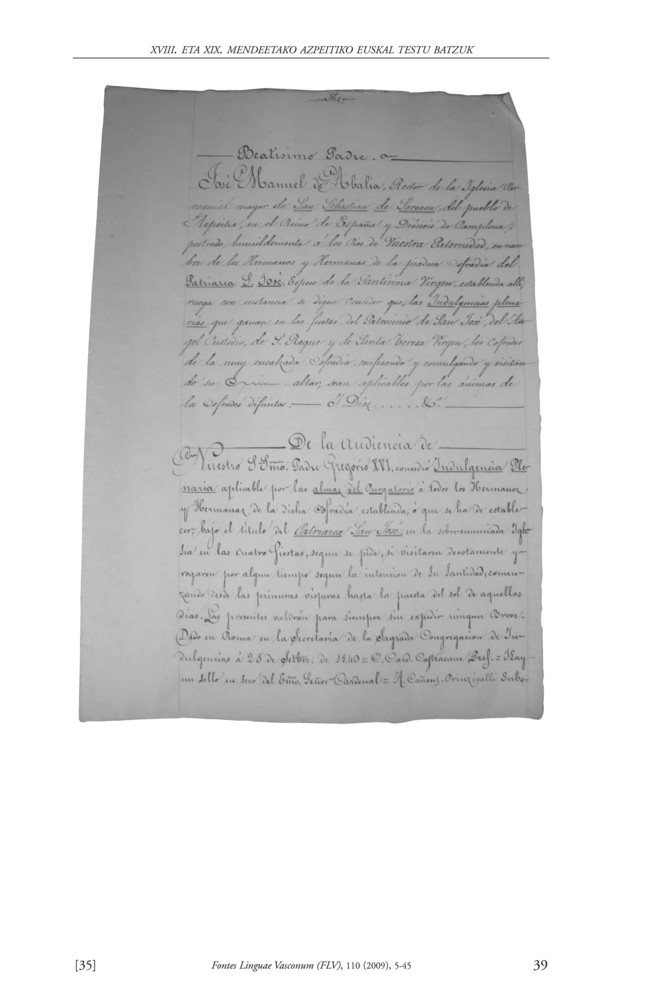 XVIII. ETA XIX. MENDEETAKO AZPEITIKO EUSKAL TESTU BATZUK
Beatisimo Padre.
José Manuel de Abalia, Rector de la Yglesia Par-
roquial mayor de San Sebastian de Soreasu, del pueblo de
Azpeitia, en el Reino de España y Diócesis de Pamplona,
postrado humildemente á los Pies de Vuestra Paternidad, en nom-
bre de los Hermanos y Hermanas de la piadosa Cofradia del
Patriarca S. José, Esposo de la Santísima Virgen, establecida allí,
ruega con instancia se digne conceder que, las Indulgencias plena-
rias que ganan en las fiestas del Patrocinio de San José, del An-
gel Custodio, de S. Roque y de Santa Teresa Virgen, los Cofrades
de la muy ensalzada Cofradia confesando y comulgando y visitan-
do su altar, sean aplicables por las ánimas de
los Cofrades difuntos. Y Dios . . . . . &c.
De la Audiencia de
Nuestro S. Smo. Padre Gregorio XVI, concedió Indulgencia Ple-
naria aplicable por las almas del Purgatorio á todos los Hermanos
y Hermanas de la dicha Cofradía establecida, ó que se ha de estable-
cer, bajo el titulo del Patriarca San José, en la sobreenunciada Ygle-
sia en las cuatro fiestas, segun se pide, si visitaren devotamente y
rogaren por algun tiempo segun la intencion de Su Santidad, comen-
zando desde las primeras vísperas hasta la puesta del sol de aquellos
dias. Las presentes valdrán para siempre sin expedir ningun Breve.
Dado en Roma en la Secretaría de la Sagrada Congregacion de In-
dulgencias á 25 de Setbre. de 1840 = C. Card. Castracane Pref. = Hay
un sello en seco del Emo. Señor Cardenal = A. Canon. Prinzivalli Subs-
[35]
Fontes Linguae Vasconum (FLV), 110 (2009), 5-45
39